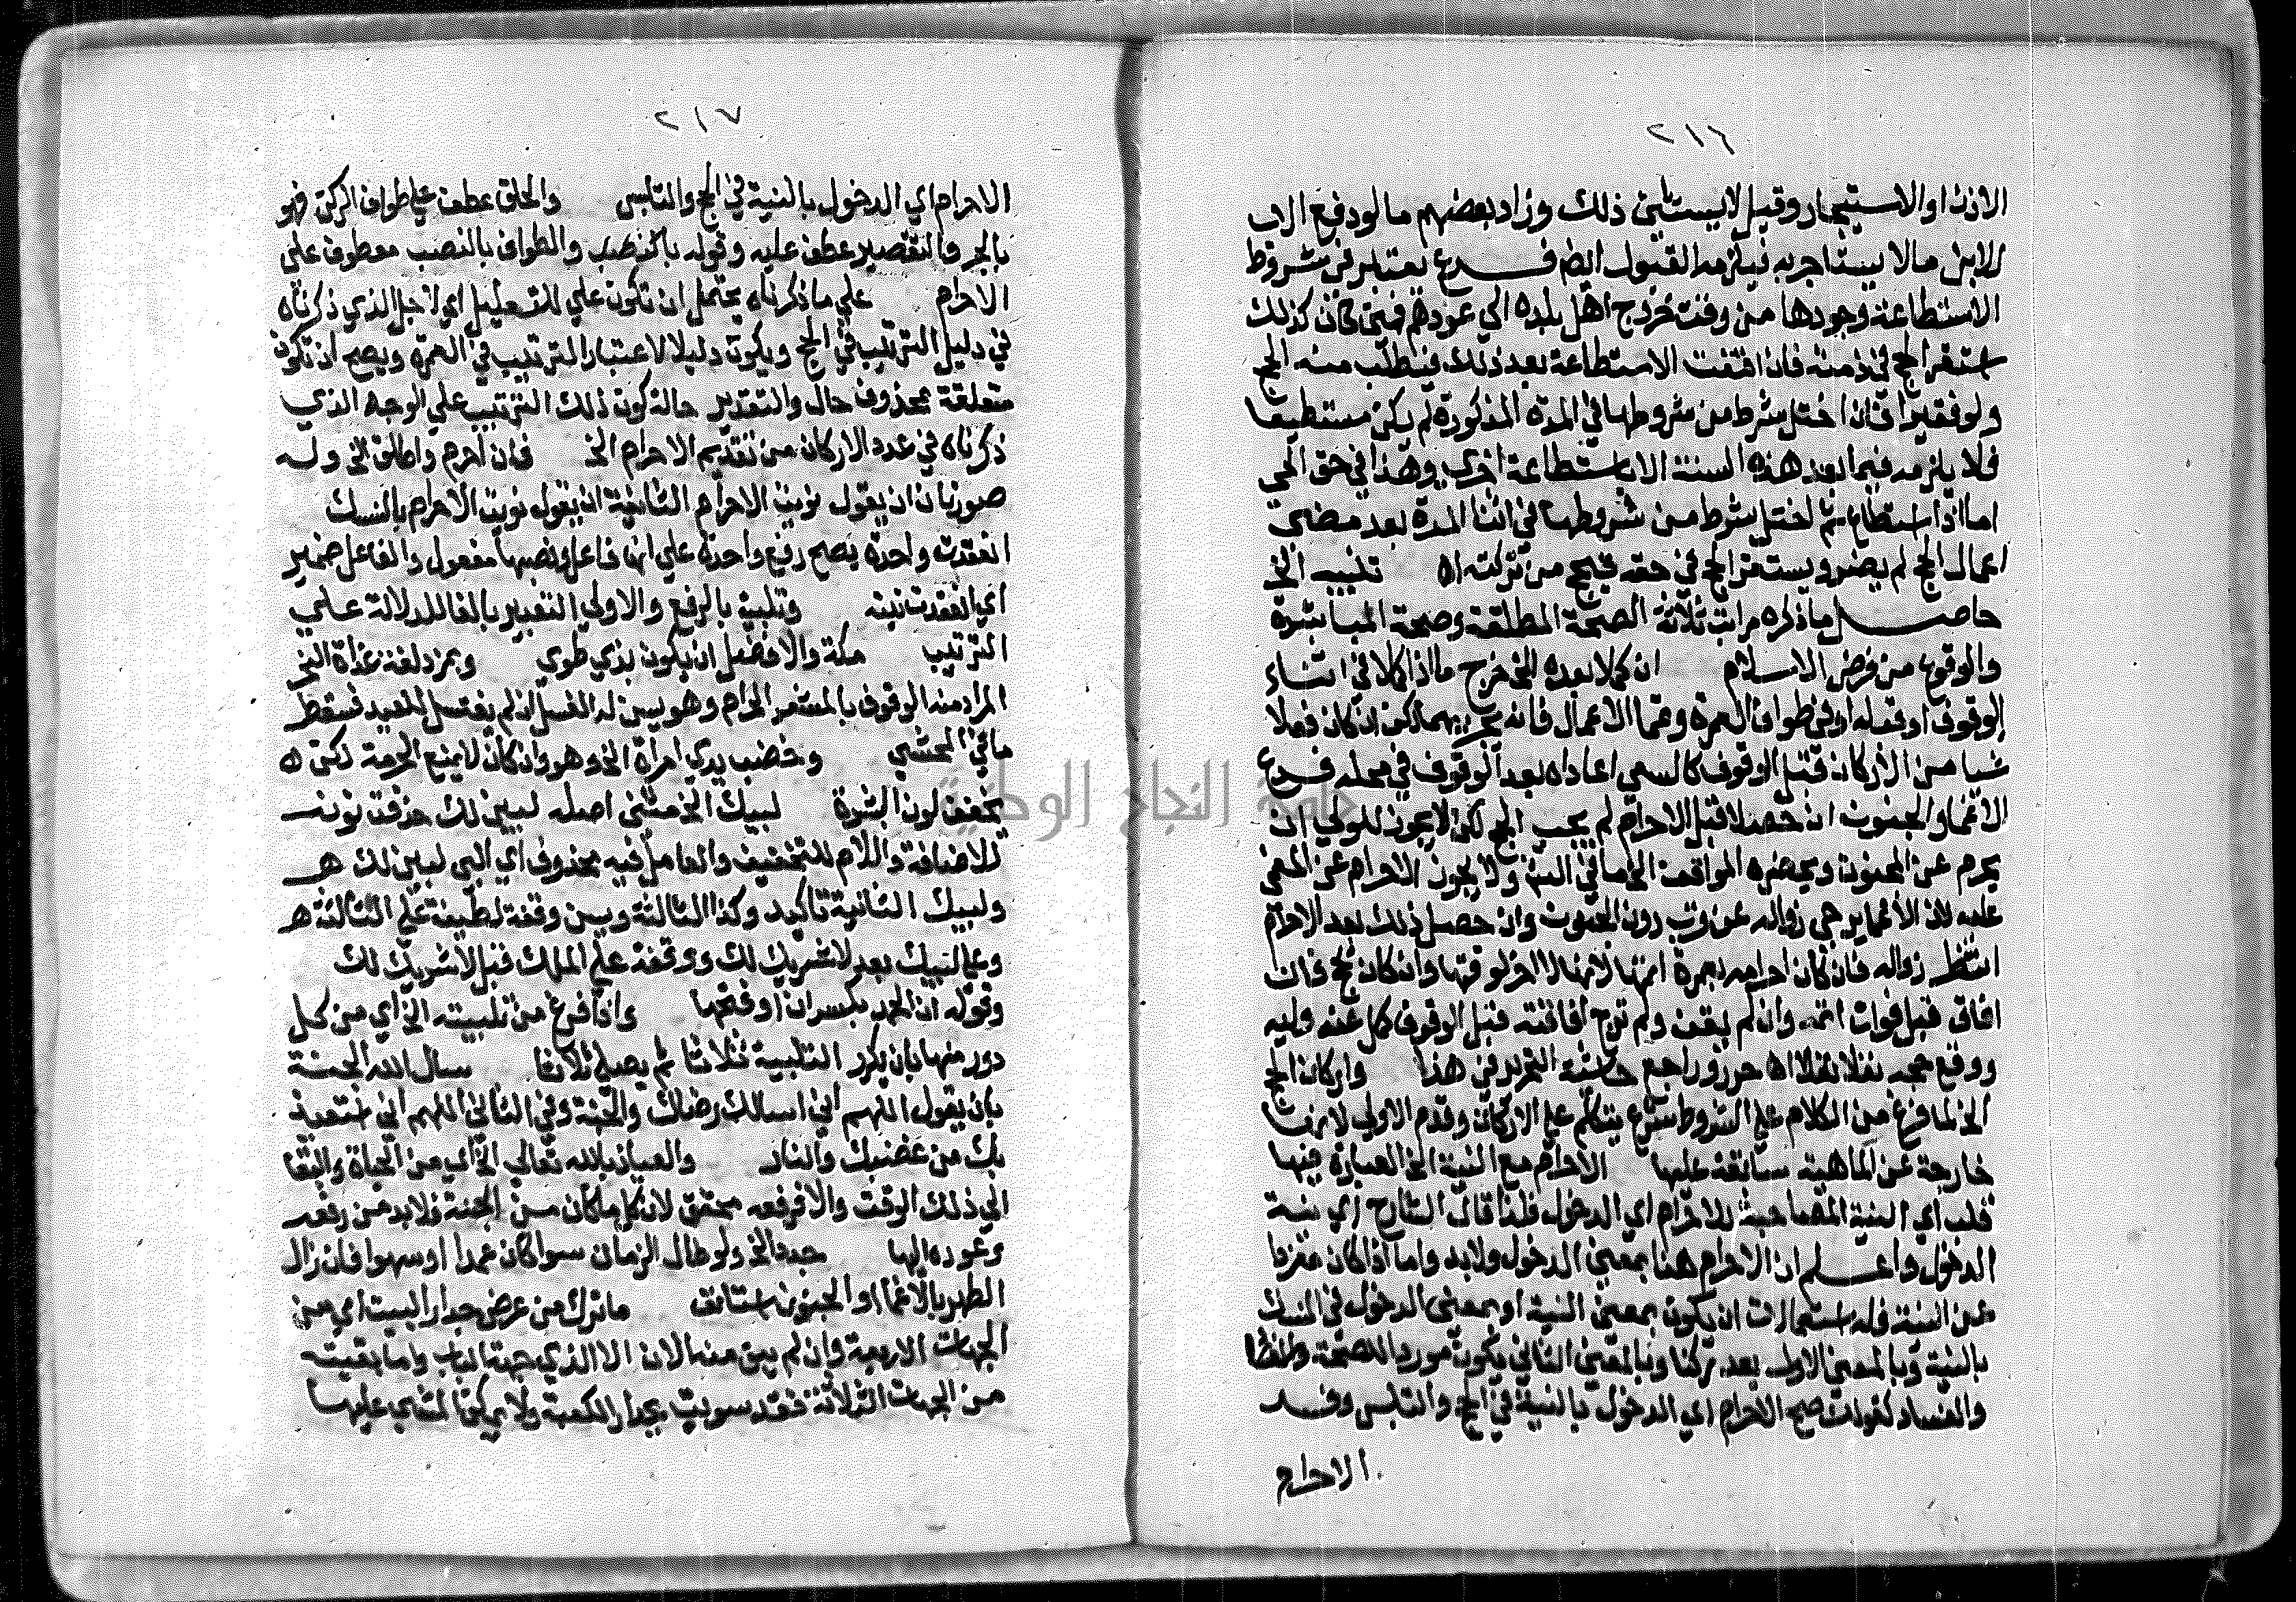 ٢١٦
الاذن او الاستيجار وقيل لا يستثنى ذلك وزاد بعضهم ما لو دفع الاب
للابن مالا يستاجر به فيلزمه القبول ايضا فرع يعتبر في شروط
الاستطاعة وجودها من وقت خروج اهل بلده الى عودهم فمتى كان كذلك
استقر الحج في ذمته فان انتفت الاستطاعة بعد ذلك فيطلب منه الحج
ولو فقيرا فان اختل شرط من شروطها في المدة المذكورة لم يكن مستطيعا
فلا يلزمه فيما بعد هذه السنة الا باستطاعة اخرى وهذا في حق الحي
اما اذا استطاع ثم اختل شرط من شروطها في اثنا المدة بعد مضي
اعمال الحج لم يضر ويستقر الحج في حقه فيحج من تركته اه تنبيه الخ
حاصل ما ذكره مراتب ثلاثة الصحة المطلقة وصحة المباشرة
والوقوع من فرض الاسلام ان كملا بعده الخ خرج ما اذا كملا في اثناء
الوقوف او قبله او في طواف العمرة وتمما الاعمال فانه يجزيهما لكن ان كان فعلا
شيا من الاركان قبل الوقوف كالسعي اعاداه بعد الوقوف في محله فرع
الاغما والجنون ان حصلا قبل الاحرام لم يجب الحج لكن لا يجوز للولي ان
يحرم عن المجنون ويحضره المواقف الخ ما في ولا يجوز الاحرام عن المغمى
عليه لان الاغما يرجى زواله عن قرب دون الجنون وان حصل ذلك بعد الاحرام
انتظر زواله فان كان احرامه بعمرة اتمها لانها لا اخر لوقتها وان كان بحج فان
افاق قبل فوات اتمه وان لم يفق ولم ترج افاقته قبل الوقوف كمل عنه وليه
ووقع حجه نفلا اه حرر وراجع حاشية التحرير في هذا واركان الحج
الخ لما فرغ من الكلام على الشروط شرع يتكلم على الاركان وقدم الاولى لانها
خارجة عن الماهية سابقة عليها الاحرام مع النية الخ العبارة فيها
قلب اي النية المصاحبة للاحرام اي الدخول فلذا قال الشارح اي نية
الدخول واعلم ان الاحرام هنا بمعنى الدخول ولابد واما اذا كان مفردا
عن النية فله استعمالات ان يكون بمعنى النية او بمعنى الدخول في النسك
بالنية وبالمعنى الاول يعد ركنا وبالمعنى الثاني يكون موردا للصحة
والفساد كقولك صح الاحرام اي الدخول بالنية في الحج والتلبس وفسد
الاحرام
٢١٧
الاحرام اي الدخول بالنية في الحج والتلبس والحلق عطف على طواف الركن فهو
بالجر والتقصير عطف عليه وقوله والطواف بالنصب معطوف على
الاحرام على ما ذكرناه يحتمل ان تكون على للتعليل اي لاجل الذي ذكرناه
في دليل الترتيب في الحج ويكون دليلا لاعتبار الترتيب في العمرة ويصح ان تكون
متعلقة بمحذوف حال والتقدير حالة كون ذلك الترتيب على الوجه الذي
ذكرناه في عدد الاركان من تقديم الاحرام الخ فان احرم واطلق الخ وله
صورتان ان يقول نويت الاحرام الثانية ان يقول نويت الاحرام بالنسك
انعقدت واحدة يصح رفع واحدة على انها فاعل ونصبها مفعول والفاعل ضمير
اي انعقدت نيته وتلبية بالرفع والاولى التعبير بالفا للدلالة على
الترتيب مكة والافضل ان يكون بذي طوى وبمزدلفة غداة النحر
المراد منه الوقوف بالمشعر الحرام وهو يسن له الغسل ان لم يغتسل للعيد فسقط
ما في المحشي وخضب يدي امراة الخ وهو وان كان لا يمنع الحرمة لكن
يخفف لون البشرة لبيك الخ مثنى اصله لبيين لك حذفت نونه
للاضافة واللام للتخفيف والعامل فيه محذوف اي البي لبيين لك
ولبيك الثانية تاكيد وكذا الثالثة ويسن وقفة لطيفة على الثالثة
وعلى لبيك بعد لا شريك لك ووقفة على الملك قبل لا شريك لك
وقوله ان الحمد بكسر ان او فتحها واذا فرغ من تلبيته الخ اي من كل
دور منها بان يكرر التلبية ثلاثا ثم يصلي ثلاثا سال الله الجنة
بان يقول اللهم اني اسالك رضاك والجنة وفي الثاني اللهم اني استعيذ
بك من غضبك والنار والعياذ بالله تعالى الخ اي من الحياة والبقا
الى ذلك الوقت والا فرفعه محقق لان كل ما كان من الجنة فلابد من رفعه
وعوده اليها جدد الخ ولو طال الزمان سوا كان عمدا او سهوا فان زال
الطهر بالاغما او الجنون استانف ما ترك من عرض جدار البيت اي من
الجهات الاربعة وان لم يبن منه الان الا الذي جهة الباب واما بقيته
من الجهات الثلاثة فقد سويت بجدار الكعبة ولا يمكن المشي عليها
جامعة النجاح الوطنية